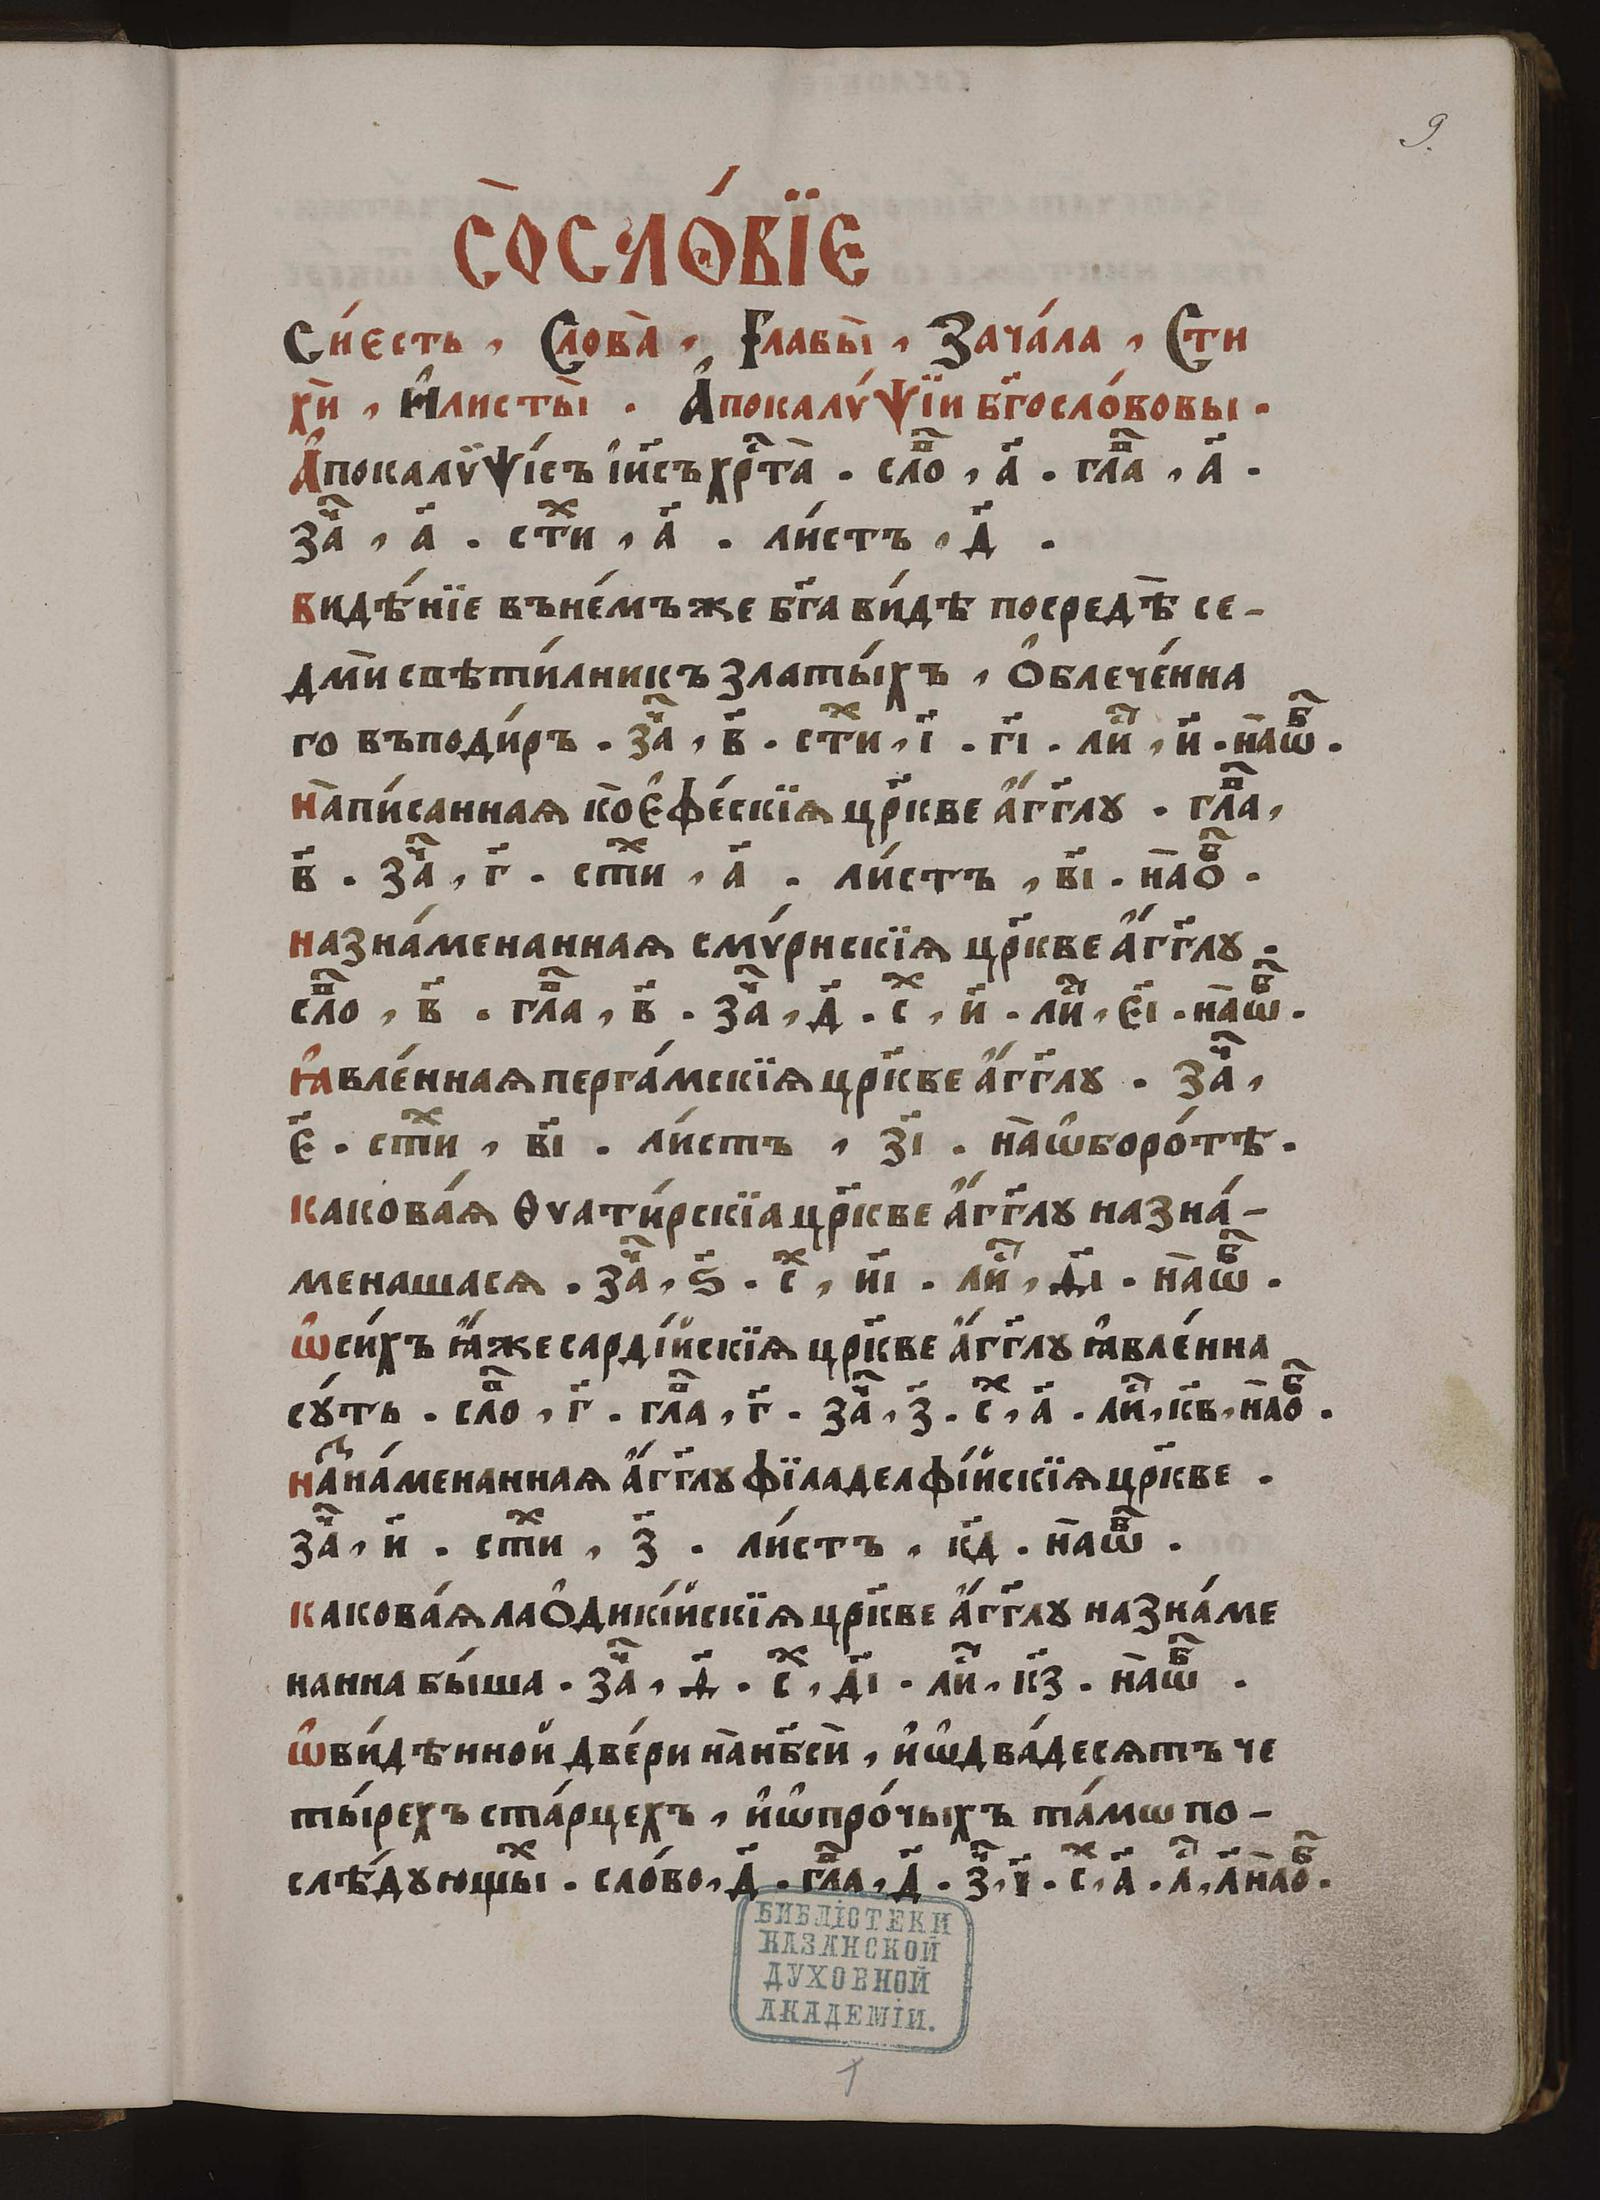 9.
СОСЛО́ВЇЕ
Си́есть, Слова̀, Главы̀, Зача́ла, Сти
хѝ, И҆листы̀. А҆покалѵ́ѰЇи бг҃осло́вовы.
А҆покалѷѰі́съ і҆и҃съ хрⷭ҇та̀. слоⷡ҇, а҃. глаⷡ҇, а҃.
заⷱ҇, а҃. стиⷯ, а҃. ли́стъ, д҃.
видѣ́нїе въне́мъже бг҃а ви́дѣ посредѣ̀ се-
дмѝ свѣти́лникъ златы́хъ, Ѻ҆блече́нна
го въподи́ръ. заⷱ҇, в҃. стиⷯ, і҃. г҃і. лиⷭ҇, и҃. на̀ѡⷠ҇.
на̀пи́санная ко̀Е҆фе́скїѧ цр҃кве а҆́гг҃лꙋ. глаⷡ҇,
в҃. заⷱ҇, г҃. стиⷯ, а҃. ли́стъ, в҃і. на̀оⷠ҇.
назна́менанная смѵ́рнскїѧ цр҃кве а҆́гг҃лꙋ.
слоⷡ҇, в҃. глаⷡ҇, в҃. заⷱ҇, д҃. сⷯ, и҃. лиⷭ҇, є҃і. на̀ѡⷠ҇.
ꙗ҆вле́ннаѧ перга́мскїѧ цр҃кве а҆́гг҃лꙋ. заⷱ҇,
є҃. стиⷯ, в҃і. ли́стъ, з҃і. на̀ѡ҆боро́тѣ.
какова́ѧ ѳѵати́рскїа цр҃кве а҆́гг҃лꙋ назна́-
менашасѧ. заⷱ҇, ѕ҃. сⷯ, и҃і. лиⷭ҇, д҃і. на̀ѡⷠ҇.
ѡ҆си́хъ ꙗ҆́же сарді́йскїѧ цр҃кве а҆́гг҃лꙋ ꙗ҆вле́нна
сꙋ́ть. слоⷡ҇, г҃. глаⷡ҇, г҃. заⷱ҇, з҃. сⷯ, а҃. лиⷭ҇, к҃в, на̀оⷠ҇.
наⷥна́менанная а҆́гг҃лꙋ фїладелфі́йскїѧ цр҃кве.
заⷱ҇, и҃. стиⷯ, з҃. ли́стъ, к҃д. на̀ѡⷠ҇.
какова́ѧ лаѺ҆дикі́йскїѧ цр҃кве а҆́гг҃лꙋ назна́ме
нанна бы́ша. заⷱ҇, д҃. сⷯ, д҃і. лиⷭ҇, к҃з. на̀ѡⷠ҇.
ѡ҆ви́дѣнной две́ри на̀нб҃сѝ, и҆ѡ҆два́десѧтъ че
ты́рехъ ста́рцехъ, и҆ѡ҆про́чыхъ та́мѡ по-
слѣ́дꙋющыⷯ. сло́во, д҃. глаⷡ҇, д҃. зⷱ҇, і҃. сⷯ, а҃. лⷭ҇, л҃ на̀оⷠ҇.
БИБЛІОТЕКИ
КАЗАНСКОЙ
ДУХОВНОЙ
АКАДЕМІИ.
1